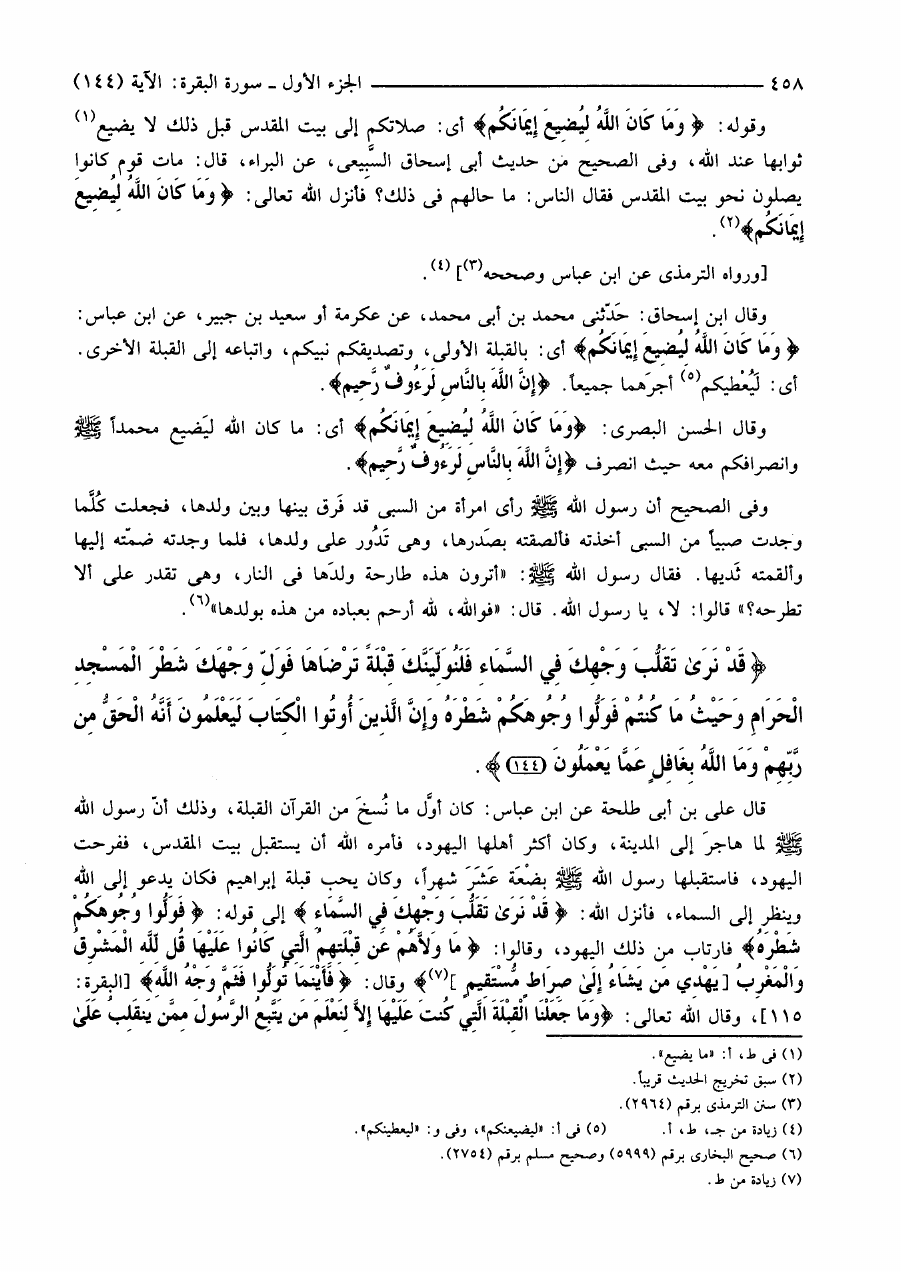 ٤٥٨ ــــــــــــــــ الجزء الأول ـ سورة البقرة: الآية (١٤٤)
وقوله: ﴿ وَمَا كَانَ اللَّهُ لِيُضِيعَ إِيمَانَكُم﴾ أى: صلاتكم إلى بيت المقدس قبل ذلك لا يضيع(١)
ثوابها عند الله، وفى الصحيح من حديث أبى إسحاق السَّبِيعى، عن البراء، قال: مات قوم كانوا
يصلون نحو بيت المقدس فقال الناس: ما حالهم فى ذلك؟ فأنزل الله تعالى: ﴿ وَمَا كَانَ اللَّهُ لِيُضِيعَ
إِيمَانَكُم﴾(٢).
[ورواه الترمذى عن ابن عباس وصححه(٣)] (٤).
وقال ابن إسحاق: حَدّثنى محمد بن أبى محمد، عن عكرمة أو سعيد بن جبير، عن ابن عباس:
﴿ وَمَا كَانَ اللَّهُ لِيُضِيعَ إِيمَانَكُم﴾ أى: بالقبلة الأولى، وتصديقكم نبيكم، واتباعه إلى القبلة الأخرى.
أى: لَيُعْطيكم(٥) أجرَهما جميعاً. ﴿إِنَّ اللَّهَ بِالنَّاسِ لَرَءُوفٌ رَّحِيم﴾.
وقال الحسن البصرى: ﴿وَمَا كَانَ اللَّهُ لِيُضِيعَ إِيمَانَكُم﴾ أى: ما كان الله ليَضيع محمداً ﷺ
وانصرافكم معه حيث انصرف ﴿إِنَّ اللَّهَ بِالنَّاسِ لَرَءُوفٌ رَّحِيم﴾.
وفى الصحيح أن رسول الله ﷺ رأى امرأة من السبى قد فَرق بينها وبين ولدها، فجعلت كُلَّما
وجدت صبياً من السبى أخذته فألصقته بصَدرها، وهى تَدُور على ولدها، فلما وجدته ضمّته إليها
وألقمته ثَديها. فقال رسول الله ﷺ: «أترون هذه طارحة ولدَها فى النار، وهى تقدر على ألا
تطرحه؟» قالوا: لا، يا رسول الله. قال: «فوالله، لله أرحم بعباده من هذه بولدها»(٦).
﴿ قَدْ نَرَىٰ تَقَلُّبَ وَجْهِكَ فِي السَّمَاءِ فَلَنُوَلِّيَنَّكَ قِبْلَةً تَرْضَاهَا فَوَلِّ وَجْهَكَ شَطْرَ الْمَسْجِدِ
الْحَرَامِ وَحَيْثُ مَا كُنتُمْ فَوَلُّوا وُجُوهَكُمْ شَطْرَهُ وَإِنَّ الَّذِينَ أُوتُوا الْكِتَابَ لَيَعْلَمُونَ أَنَّهُ الْحَقُّ مِن
رَّبِّهِمْ وَمَا اللَّهُ بِغَافِلٍ عَمَّا يَعْمَلُونَ (١٤٤) ﴾.
قال على بن أبى طلحة عن ابن عباس: كان أوَّل ما نُسخَ من القرآن القبلة، وذلك أنّ رسول الله
ﷺ لما هاجرَ إلى المدينة، وكان أكثر أهلها اليهود، فأمره الله أن يستقبل بيت المقدس، ففرحت
اليهود، فاستقبلها رسول الله ﷺ بضْعَة عَشَرَ شهراً، وكان يحب قبلة إبراهيم فكان يدعو إلى الله
وينظر إلى السماء، فأنزل الله: ﴿ قَدْ نَرَىٰ تَقَلُّبَ وَجْهِكَ فِي السَّمَاءِ ﴾ إلى قوله: ﴿ فَوَلُّوا وُجُوهَكُمْ
شَطْرَهُ﴾ فارتاب من ذلك اليهود، وقالوا: ﴿ مَا وَلاَّهُمْ عَن قِبْلَتِهِمُ الَّتِي كَانُوا عَلَيْهَا قُل لِّلَّهِ الْمَشْرِقُ
وَالْمَغْرِبُ [يَهْدِي مَن يَشَاءُ إِلَىٰ صِرَاطٍ مُّسْتَقِيمٍ ](٧)﴾ وقال: ﴿ فَأَيْنَمَا تُوَلُّوا فَثَمَّ وَجْهُ اللَّهِ﴾ [البقرة:
١١٥]، وقال الله تعالى: ﴿وَمَا جَعَلْنَا الْقِبْلَةَ الَّتِي كُنتَ عَلَيْهَا إِلاَّ لِنَعْلَمَ مَن يَتَّبِعُ الرَّسُولَ مِمَّن يَنقَلِبُ عَلَىٰ
(١) فى ط، أ: «ما يضيع».
(٢) سبق تخريج الحديث قريباً.
(٣) سنن الترمذى برقم (٢٩٦٤).
(٤) زيادة من جـ، ط، أ. (٥) فى أ: «ليضيعنكم»، وفى و: «ليعطينكم».
(٦) صحيح البخارى برقم (٥٩٩٩) وصحيح مسلم برقم (٢٧٥٤).
(٧) زيادة من ط.